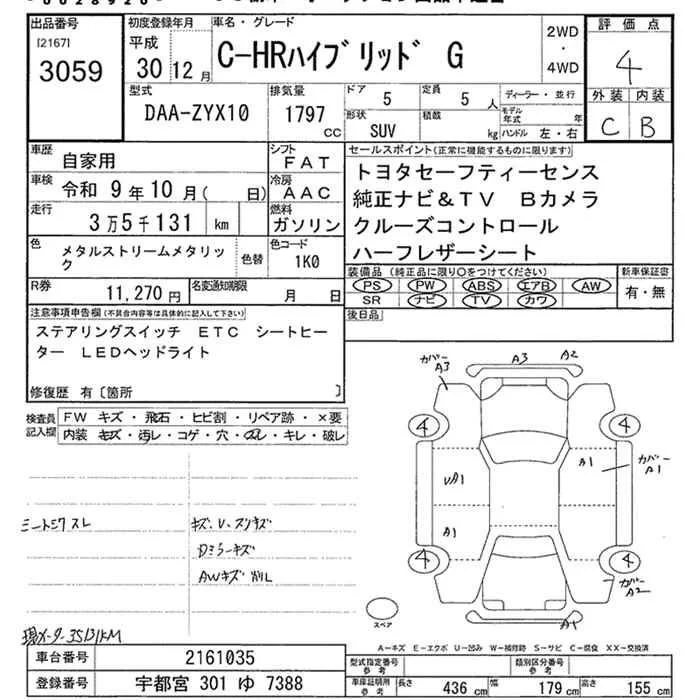 出品番号
[2167]
3059
初度登録年月
平成
30年 12月
車名・グレード
C-HRハイブリッド G
2WD
・
4WD
評価点
4
外装 内装
C B
型式
DAA-ZYX10
排気量
1797
CC
ドア
5
定員
5 人
ディーラー・並行
形状
SUV
積載
kg
モデル年式
年
ハンドル 左・右
車歴
自家用
シフト
FAT
車検
令和 9年 10月( 日)
冷房
AAC
走行
3万5千131 km
燃料
ガソリン
セールスポイント(正常に機能するものに限ります)
トヨタセーフティーセンス
純正ナビ&TV Bカメラ
クルーズコントロール
ハーフレザーシート
色
メタルストリームメタリック
色替
色コード
1K0
R券
11,270円
名変通知期限
月 日
装備品(純正品に限り○をつけてください)
PS PW ABS エアB AW
SR ナビ TV カワ
新車保証書
有・無
後日品
注意事項申告欄(不具合内容等は具体的に記入して下さい)
ステアリングスイッチ ETC シートヒー
ター LEDヘッドライト
修復歴 有〔箇所 〕
検査員記入欄
FW キズ・飛石・ヒビ割・リペア跡・×要
内装 キズ・汚レ・コゲ・穴・スレ・キレ・破レ
シートシワスレ
キズ、U、スリキズ
Dミラーキズ
AWキズ
現メーター35131KM
カバー
A3
A3
A2
4
4
UA1
A1
A1
カバー
A1
4
4
カバー
A2
A1
スペア
A-キズ E-エクボ U-凹み W-補修跡 S-サビ C-腐食 XX-交換済
車台番号
2161035
登録番号
宇都宮 301 ゆ 7388
型式指定番号
参考
類別区分番号
参考
車庫証明用
参考
長さ
436 cm
幅
179 cm
高さ
155 cm